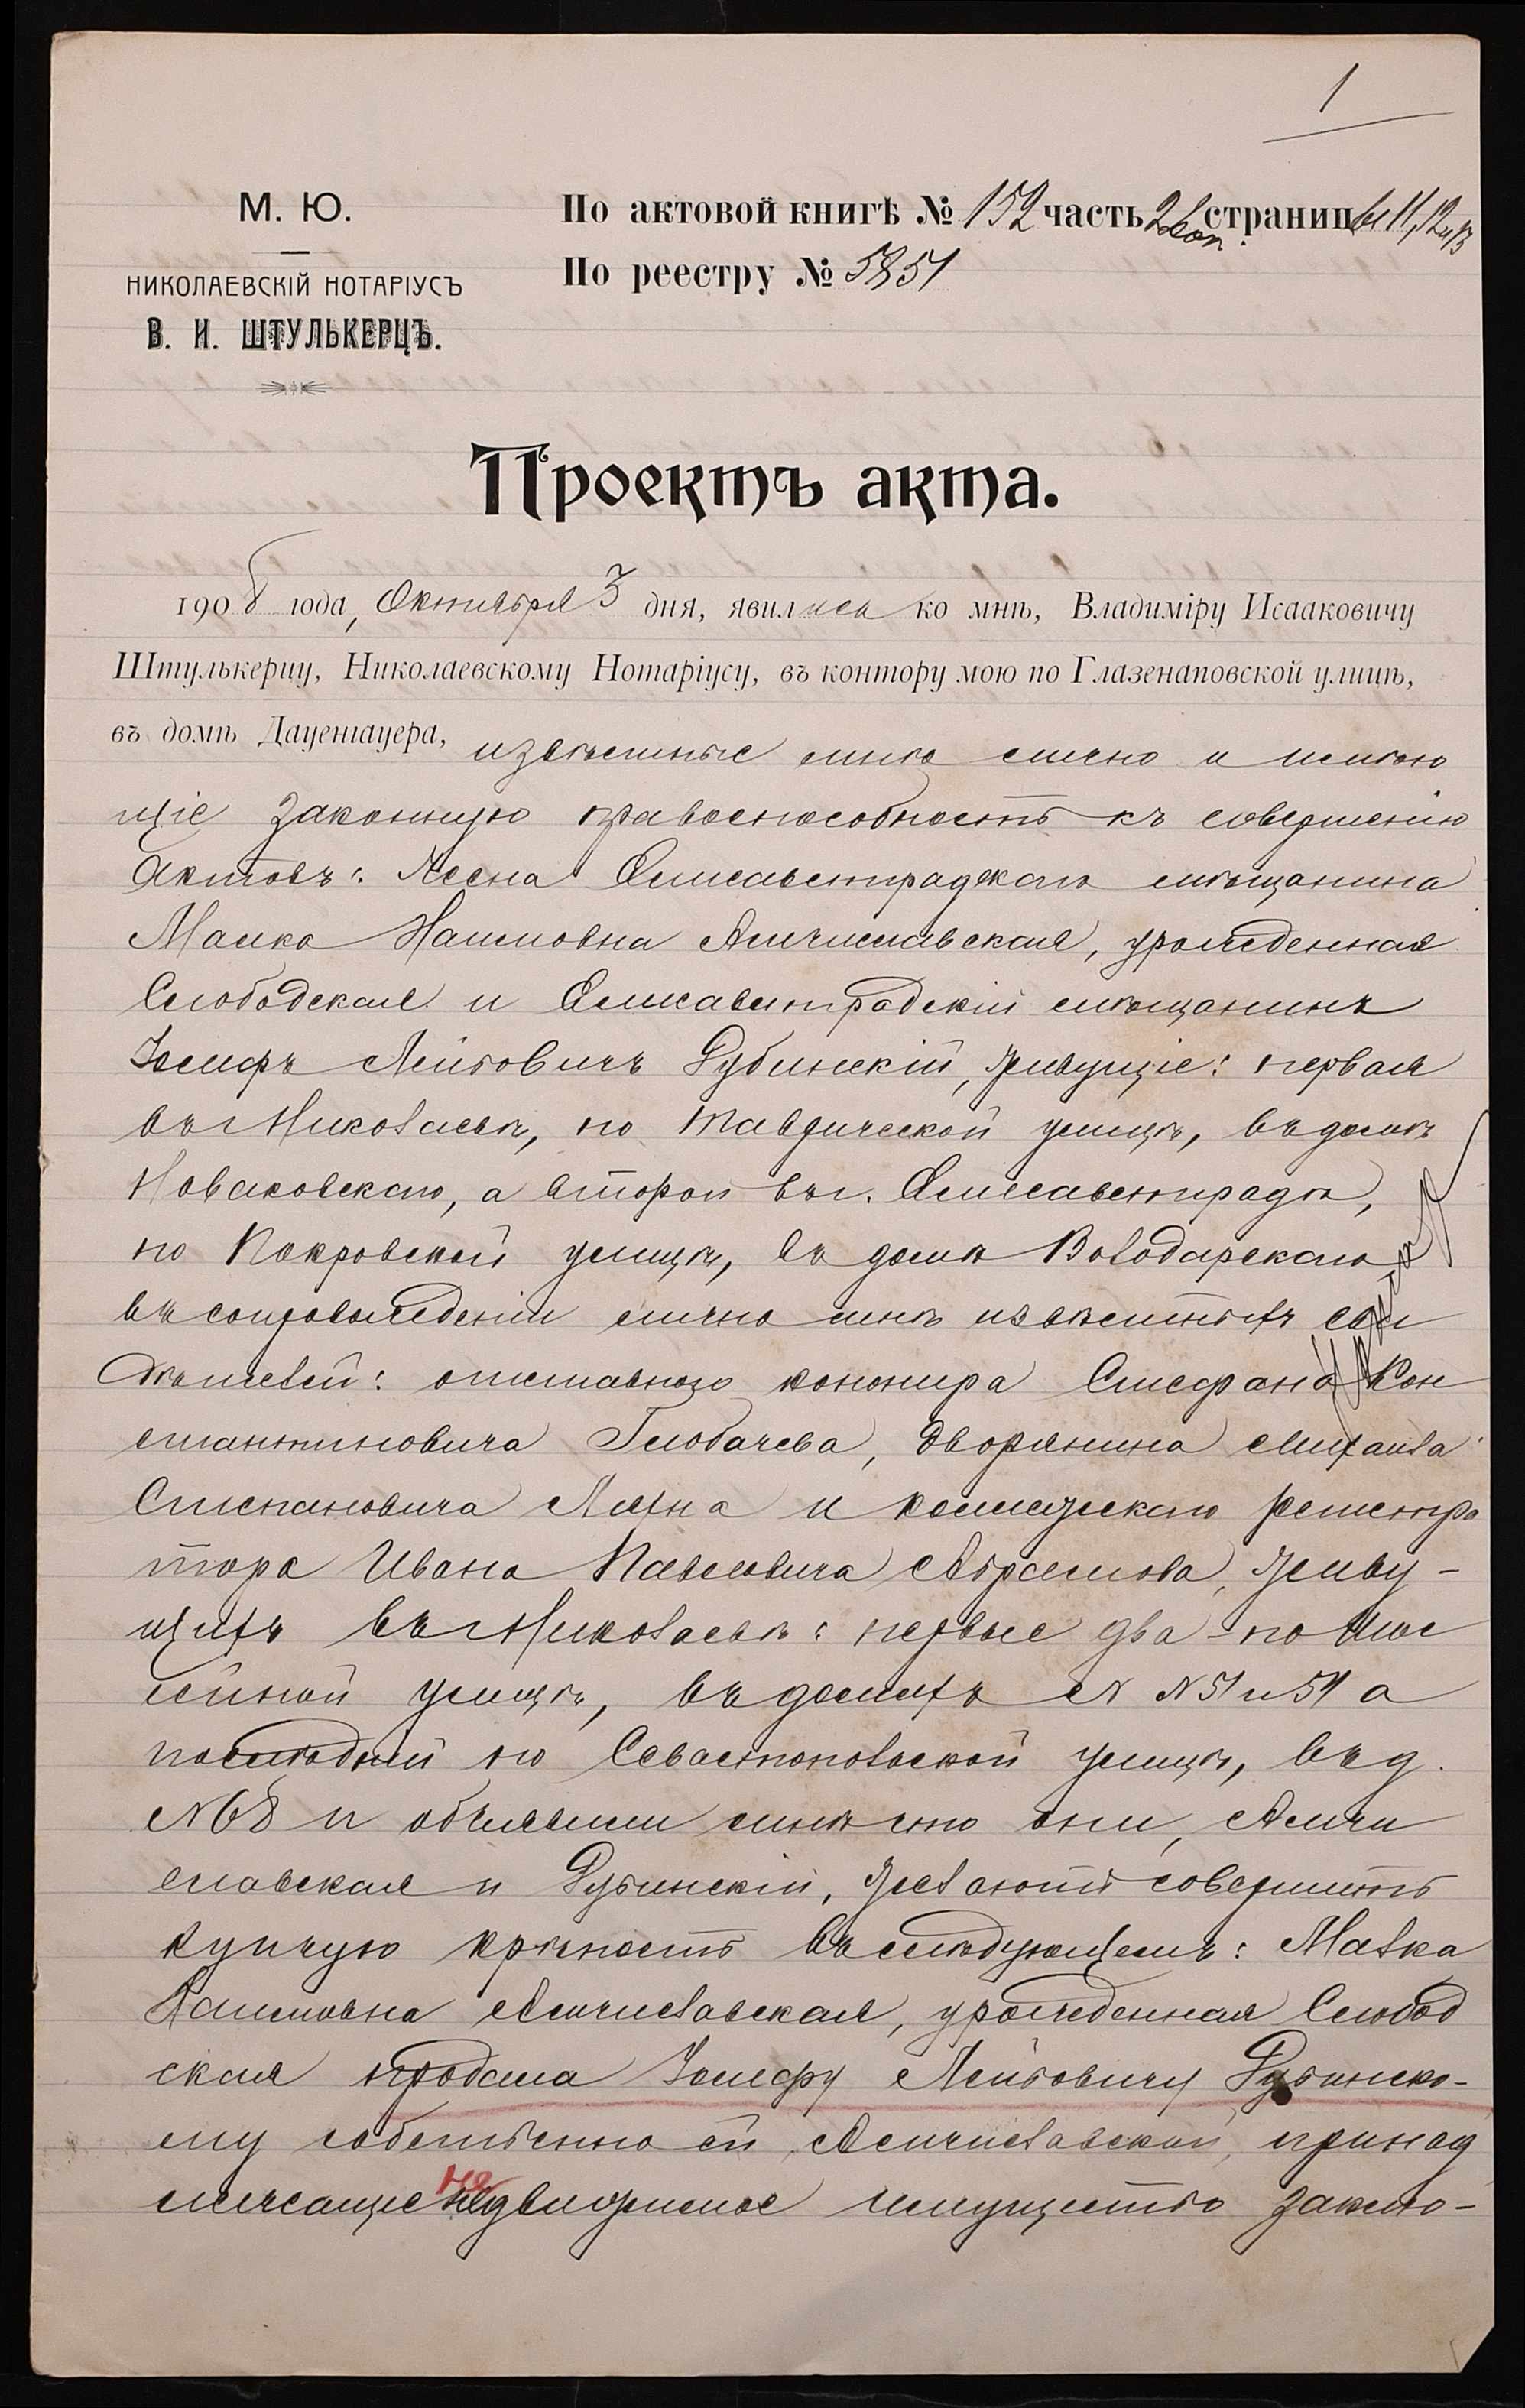 1
М. Ю.
НИКОЛАЕВСКІЙ НОТАРІУСЪ
В. И. ШТУЛЬКЕРЦЪ.
По актовой книгѣ № 152 часть 2 страницы 11, 12 и 13
По реестру № 5851
Проектъ акта.
1908 года, Октября 3 дня, явились ко мнѣ, Владиміру Исааковичу
Штулькерцу, Николаевскому Нотаріусу, въ контору мою по Глазенаповской улицѣ,
въ домѣ Дауенгауера, извѣстные мнѣ лично и имѣю
щіе законную правоспособность къ совершенію
актовъ: Жена Елисаветградскаго мѣщанина
Малка Наимовна Амчиславская, урожденная
Слободская и Елисаветградскій мѣщанинъ
Іосифъ Лейбовичъ Рубинскій, живущіе: первая
въ г. Николаевѣ, по Таврической улицѣ, въ домѣ
Новаковскаго, а второй въ г. Елисаветградѣ,
по Покровской улицѣ, въ домѣ Володарскаго,
въ сопровожденіи лично мнѣ извѣстныхъ сви
дѣтелей: отставнаго канонира Стефана Кон
стантиновича Глобачева, дворянина Михаила
Степановича Ляхна и коллежскаго регистра
тора Ивана Павловича Абрамова, живу-
щихъ въ г. Николаевѣ: первые два - по Шос
сейной улицѣ, въ домахъ № № 51 и 51 а
послѣдній по Севастопольской улицѣ, въ д.
№ 68 и объявили мнѣ что они, Амчи
славская и Рубинскій, желаютъ совершить
купчую крѣпость въ слѣдующемъ: Малка
Наимовна Амчиславская, урожденная Слобод
ская продала Іосифу Лейбовичу Рубинско-
му собственно ей, Амчиславской, принад
лежащее недвижимое имущество заклю-